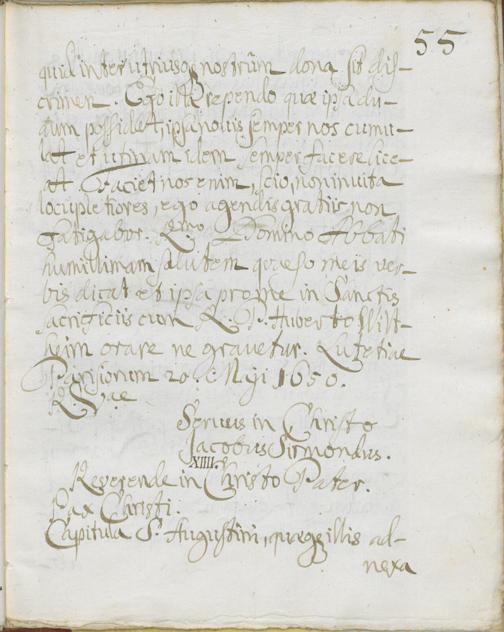 55
quid inter utriusq. nostrûm dona sit dis-
crimen. Ego illa rependo quæ ipsa du-
dum possidet, ipsa novis semper nos cumu-
lat et utinam idem semper facere lice-
at. Faciet nos enim, scio, non invita
locupletiores, ego agendis gratiis non
fatigabor. Rmo Domino Abbati
humillimam salutem quæso meis ver-
bis dicat et ipsa pro me in Sanctis
sacrificiis cum R. P. Huberto
orare ne gravetur. Lutetiæ
Parisiorum 20. Maji 1650.
R. Væ
Servus in Christo
Jacobus Sirmondus.
XIIII.
Reverende in Christo Pater.
Pax Christi.
Capitula S. Augustini, quæq. illis ad-
nexa